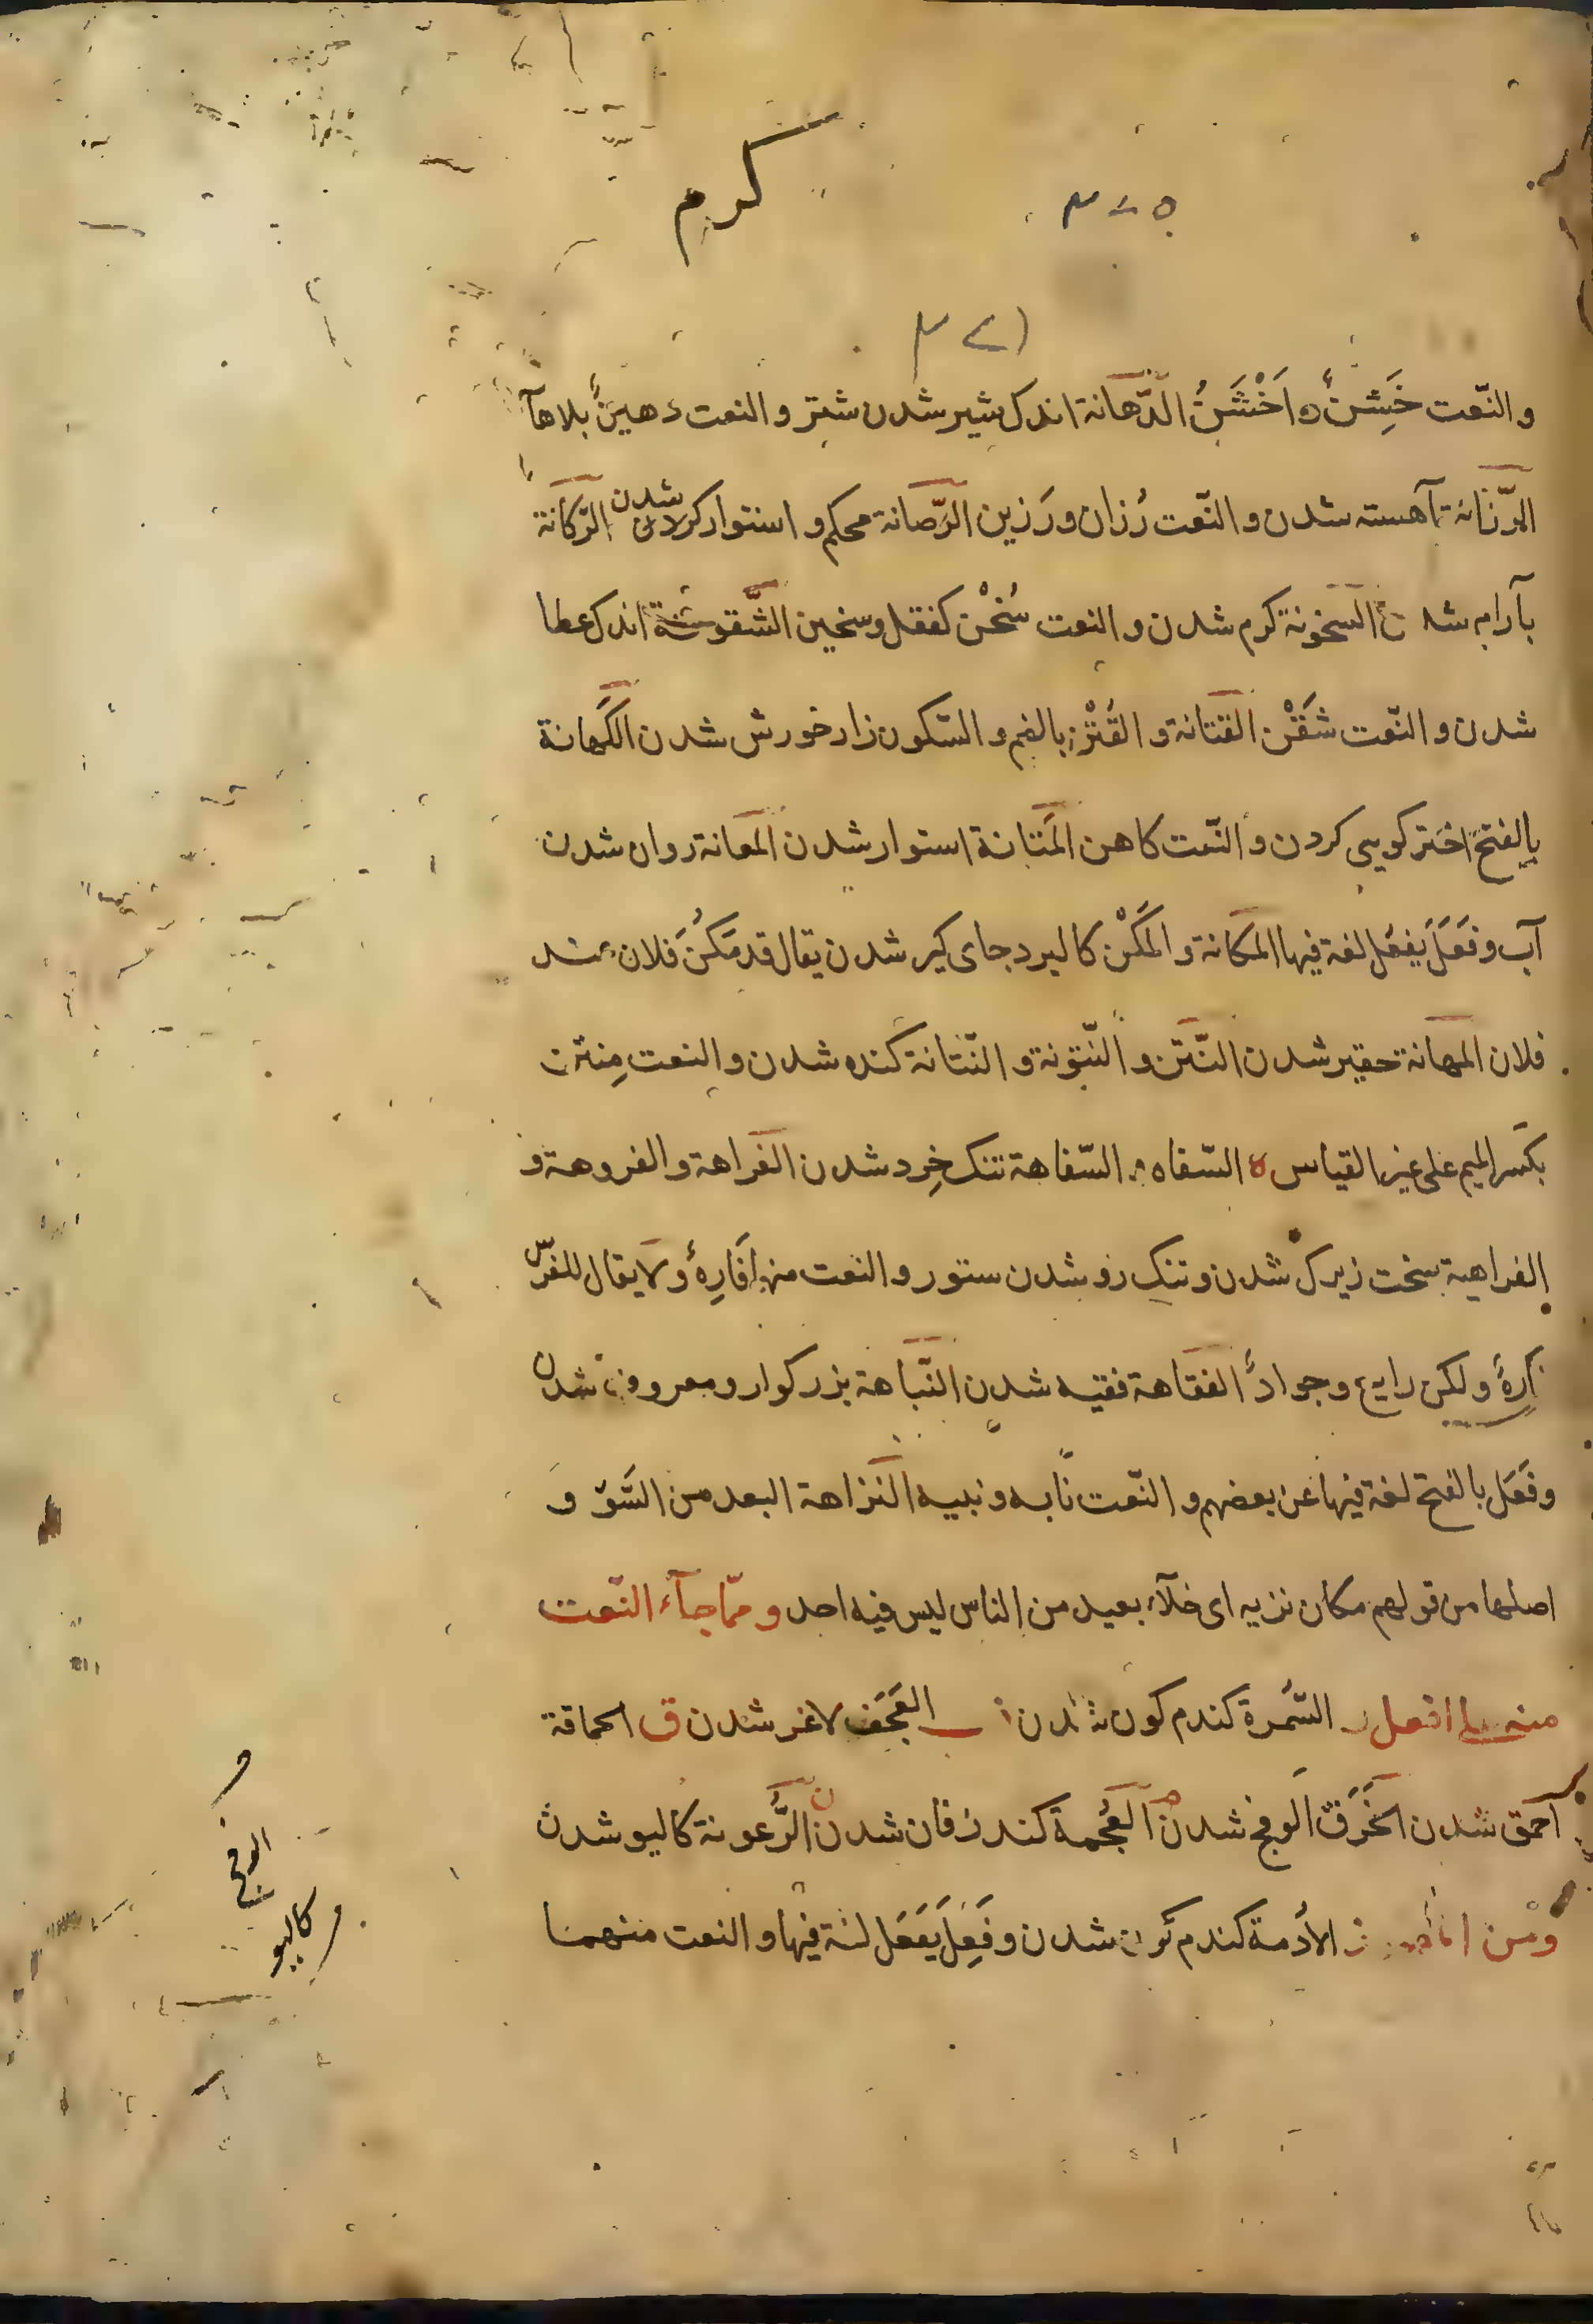 کرم
والنّعت خَشِنٌ واَخْشَنُ الدَّهانة اندک شیر شدن شتر والنعت دهینٌ بلاهآ
الرّزانة آهسته شدن والنّعت رُزان ورَزین الرَّصانة محکم و استوار کردن شدن الرّکانة
بآرام شدن السّخونة کرم شدن والنعت سُخْن کفقل وسخین الشّقونة اندک عطا
شدن و النّعت شَقْن القتانة و القُتْن بالضم والسّکون زار خورش شدن الکَهانة
بالفتح اختر کویی کردن و النّعت کاهن المَتانة استوار شدن المَعانة روان شدن
آب و فَعَلَ یفعَل لغة فیها المکانة و المَکْن کالبرد جای کیر شدن یقال قد مَکُنَ فلان عند
فلان المهانة حقیر شدن النَّتن و النّتونة و النّتانة کنده شدن و النعت مِنتن
بکسر المیم علی غیر القیاس ه السّفاه و السّفاهة تنک خِرد شدن الفراهة و الفروهة و
الفراهیة سخت زیرک شدن و تنک رو شدن ستور و النعت منها فَارِهٌ ولا یقال للفرس
فارهٌ ولکن رایع وجوادٌ الفقاهة فقیه شدن النّباهة بزرکوار و معروف شدن
و فَعَل بالفتح لغة فیها عن بعضهم و النّعت نابه و نبیه النّزاهة البعد من السّوّ و
اصلها من قولهم مکان نزیه ای خلآء بعید من الناس لیس فیه احد و ممّا جآء النّعت
منه علی افعل ر السّمرة کندم کون شدن ف العَجَف لاغر شدن ق الحماقة
احمق شدن الخَرَق الوفج شدن م العُجمة کند زفان شدن ن الرُّعونة کالیو شدن
ومن الأدمة کندم کون شدن و فَعِلَ یَفعَل لغة فیها و النعت منهما
الوفج
کالیو